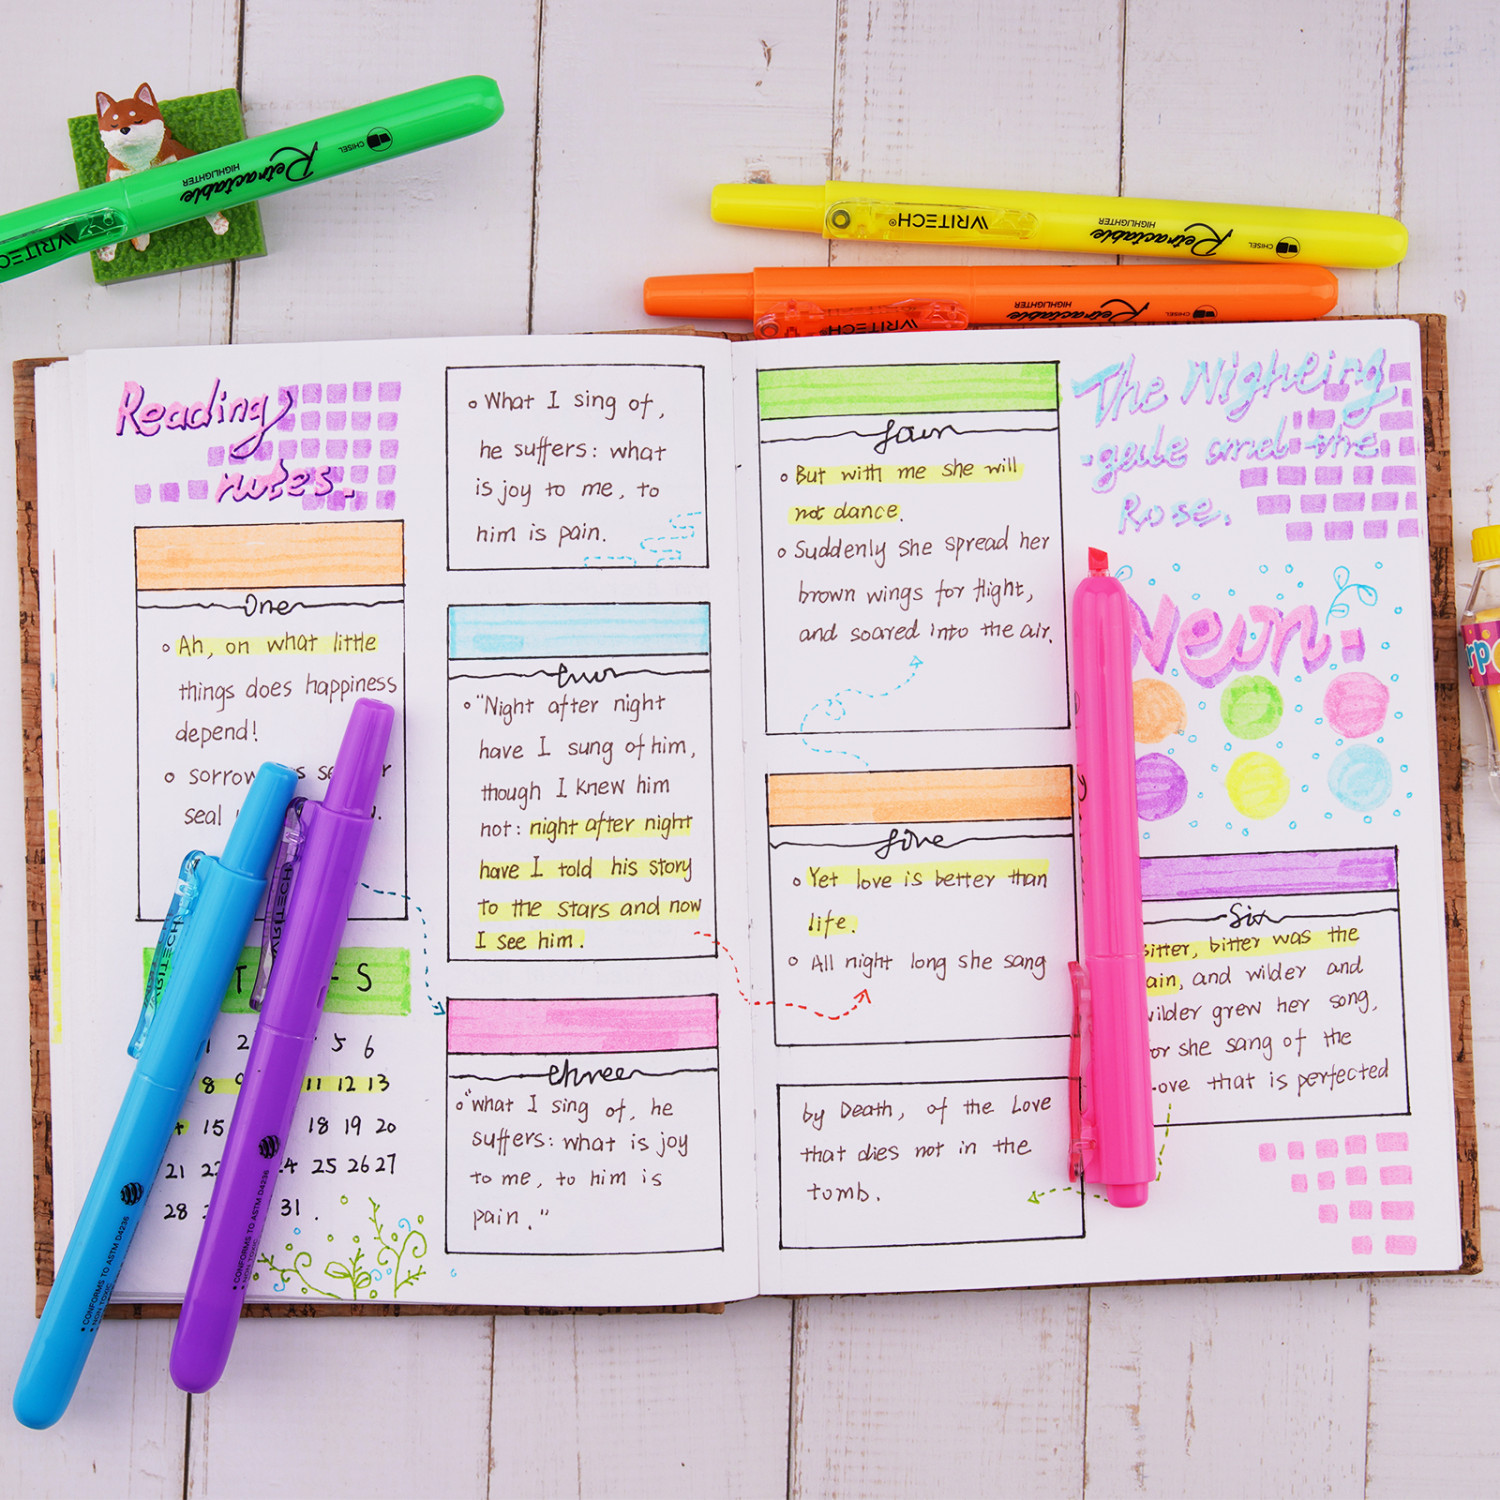 CHISEL
Retractable
HIGHLIGHTER
WRITECH
WRITECH®
Retractable
HIGHLIGHTER
CHISEL
WRITECH®
Retractable
HIGHLIGHTER
CHISEL
Reading
notes.
One
Ah, on what little
things does happiness
depend!
sorrow
seal
T - S
1 2 5 6
8 9 11 12 13
15 18 19 20
21 25 26 27
28 31.
What I sing of,
he suffers: what
is joy to me, to
him is pain.
"Night after night
have I sung of him,
though I knew him
not: night after night
have I told his story
to the stars and now
I see him.
"what I sing of, he
suffers: what is joy
to me, to him is
pain."
But with me she will
not dance.
Suddenly she spread her
brown wings for flight,
and soared into the air.
five
Yet love is better than
life.
All night long she sang
by Death, of the Love
that dies not in the
tomb.
The Nigheing
-gale and the
Rose.
Neon.
Six
bitter was the
and wilder and
grew her song,
she sang of the
that is perfected
WRITECH
CONFORMS TO ASTM D4236
NON TOXIC
WRITECH
CONFORMS TO ASTM D4236
NON TOXIC